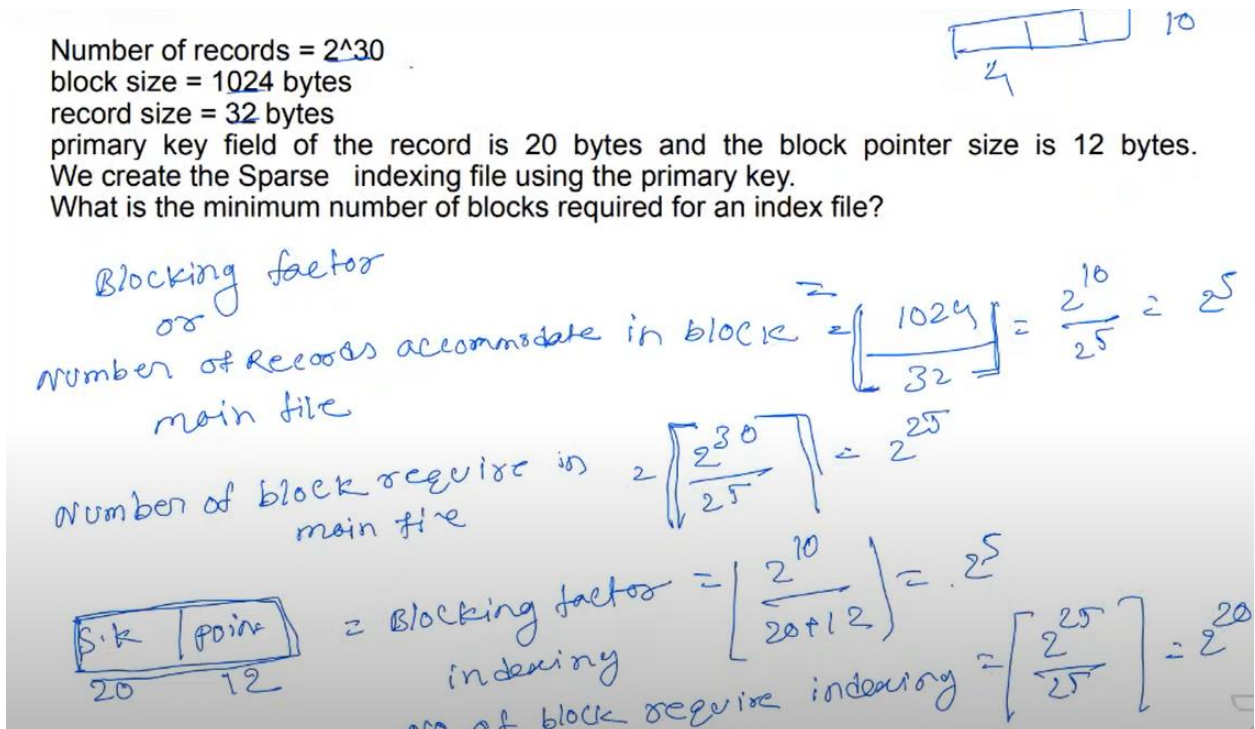 10
4
Number of records = 2^30
block size = 1024 bytes
record size = 32 bytes
primary key field of the record is 20 bytes and the block pointer size is 12 bytes.
We create the Sparse indexing file using the primary key.
What is the minimum number of blocks required for an index file?
Blocking factor
or
Number of Records accommodate in block = = ⌊1024/32⌋ = 2^10/2^5 = 2^5
main file
Number of block require in = ⌈2^30/2^5⌉ = 2^25
main file
S.k | Point = Blocking factor = ⌊2^10/20+12⌋ = 2^5
20 12 indexing
of block require indexing = ⌈2^25/2^5⌉ = 2^20